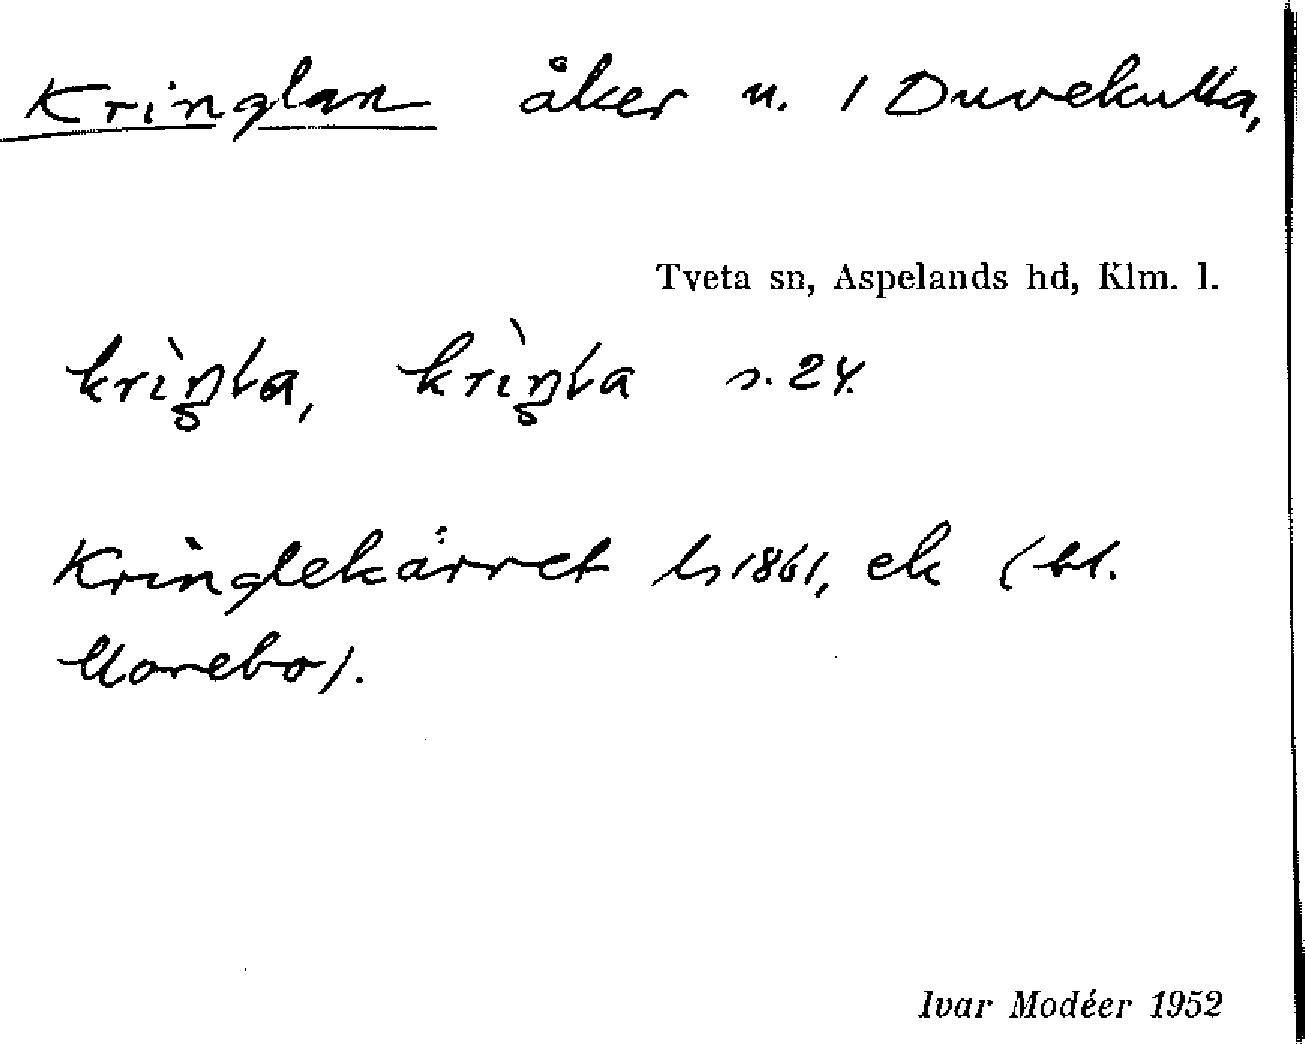 Kringlan åker n. / Duvekulla,
Tveta sn, Aspelands hd, Klm. l.
krìŋla, krìŋla s. 24.
Kringlekärret ls 1861, ek (bl.
Morebo).
Ivar Modéer 1952